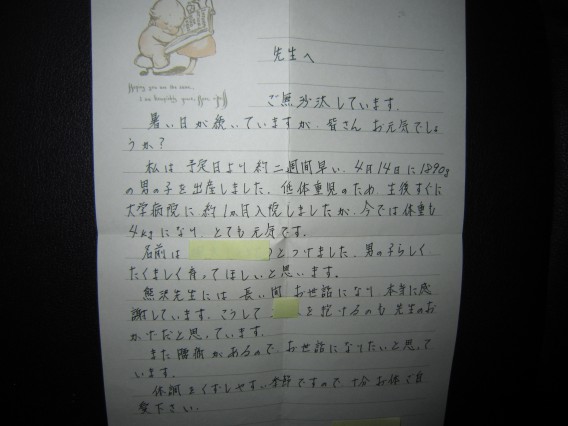 先生へ
ご無沙汰しています.
暑い日が続いていますが、皆さん お元気でしょ
うか?
私は 予定日より 約二週間早い、4月14日に1890g
の男の子を出産しました。低体重児のため、生後すぐに
大学病院に 約1ヵ月入院しましたが、今では体重も
4kgになり、とても元気です。
名前は とつけました。男の子らしく
たくましく育ってほしいと思います。
熊沢先生には 長い間 お世話になり 本当に感
謝しています。こうして を抱けるのも 先生のお
かげだと思っています。
また 機会があるので、お世話になりたいと思って
います。
体調をくずしやすい季節ですので 十分お体ご自
愛下さい.